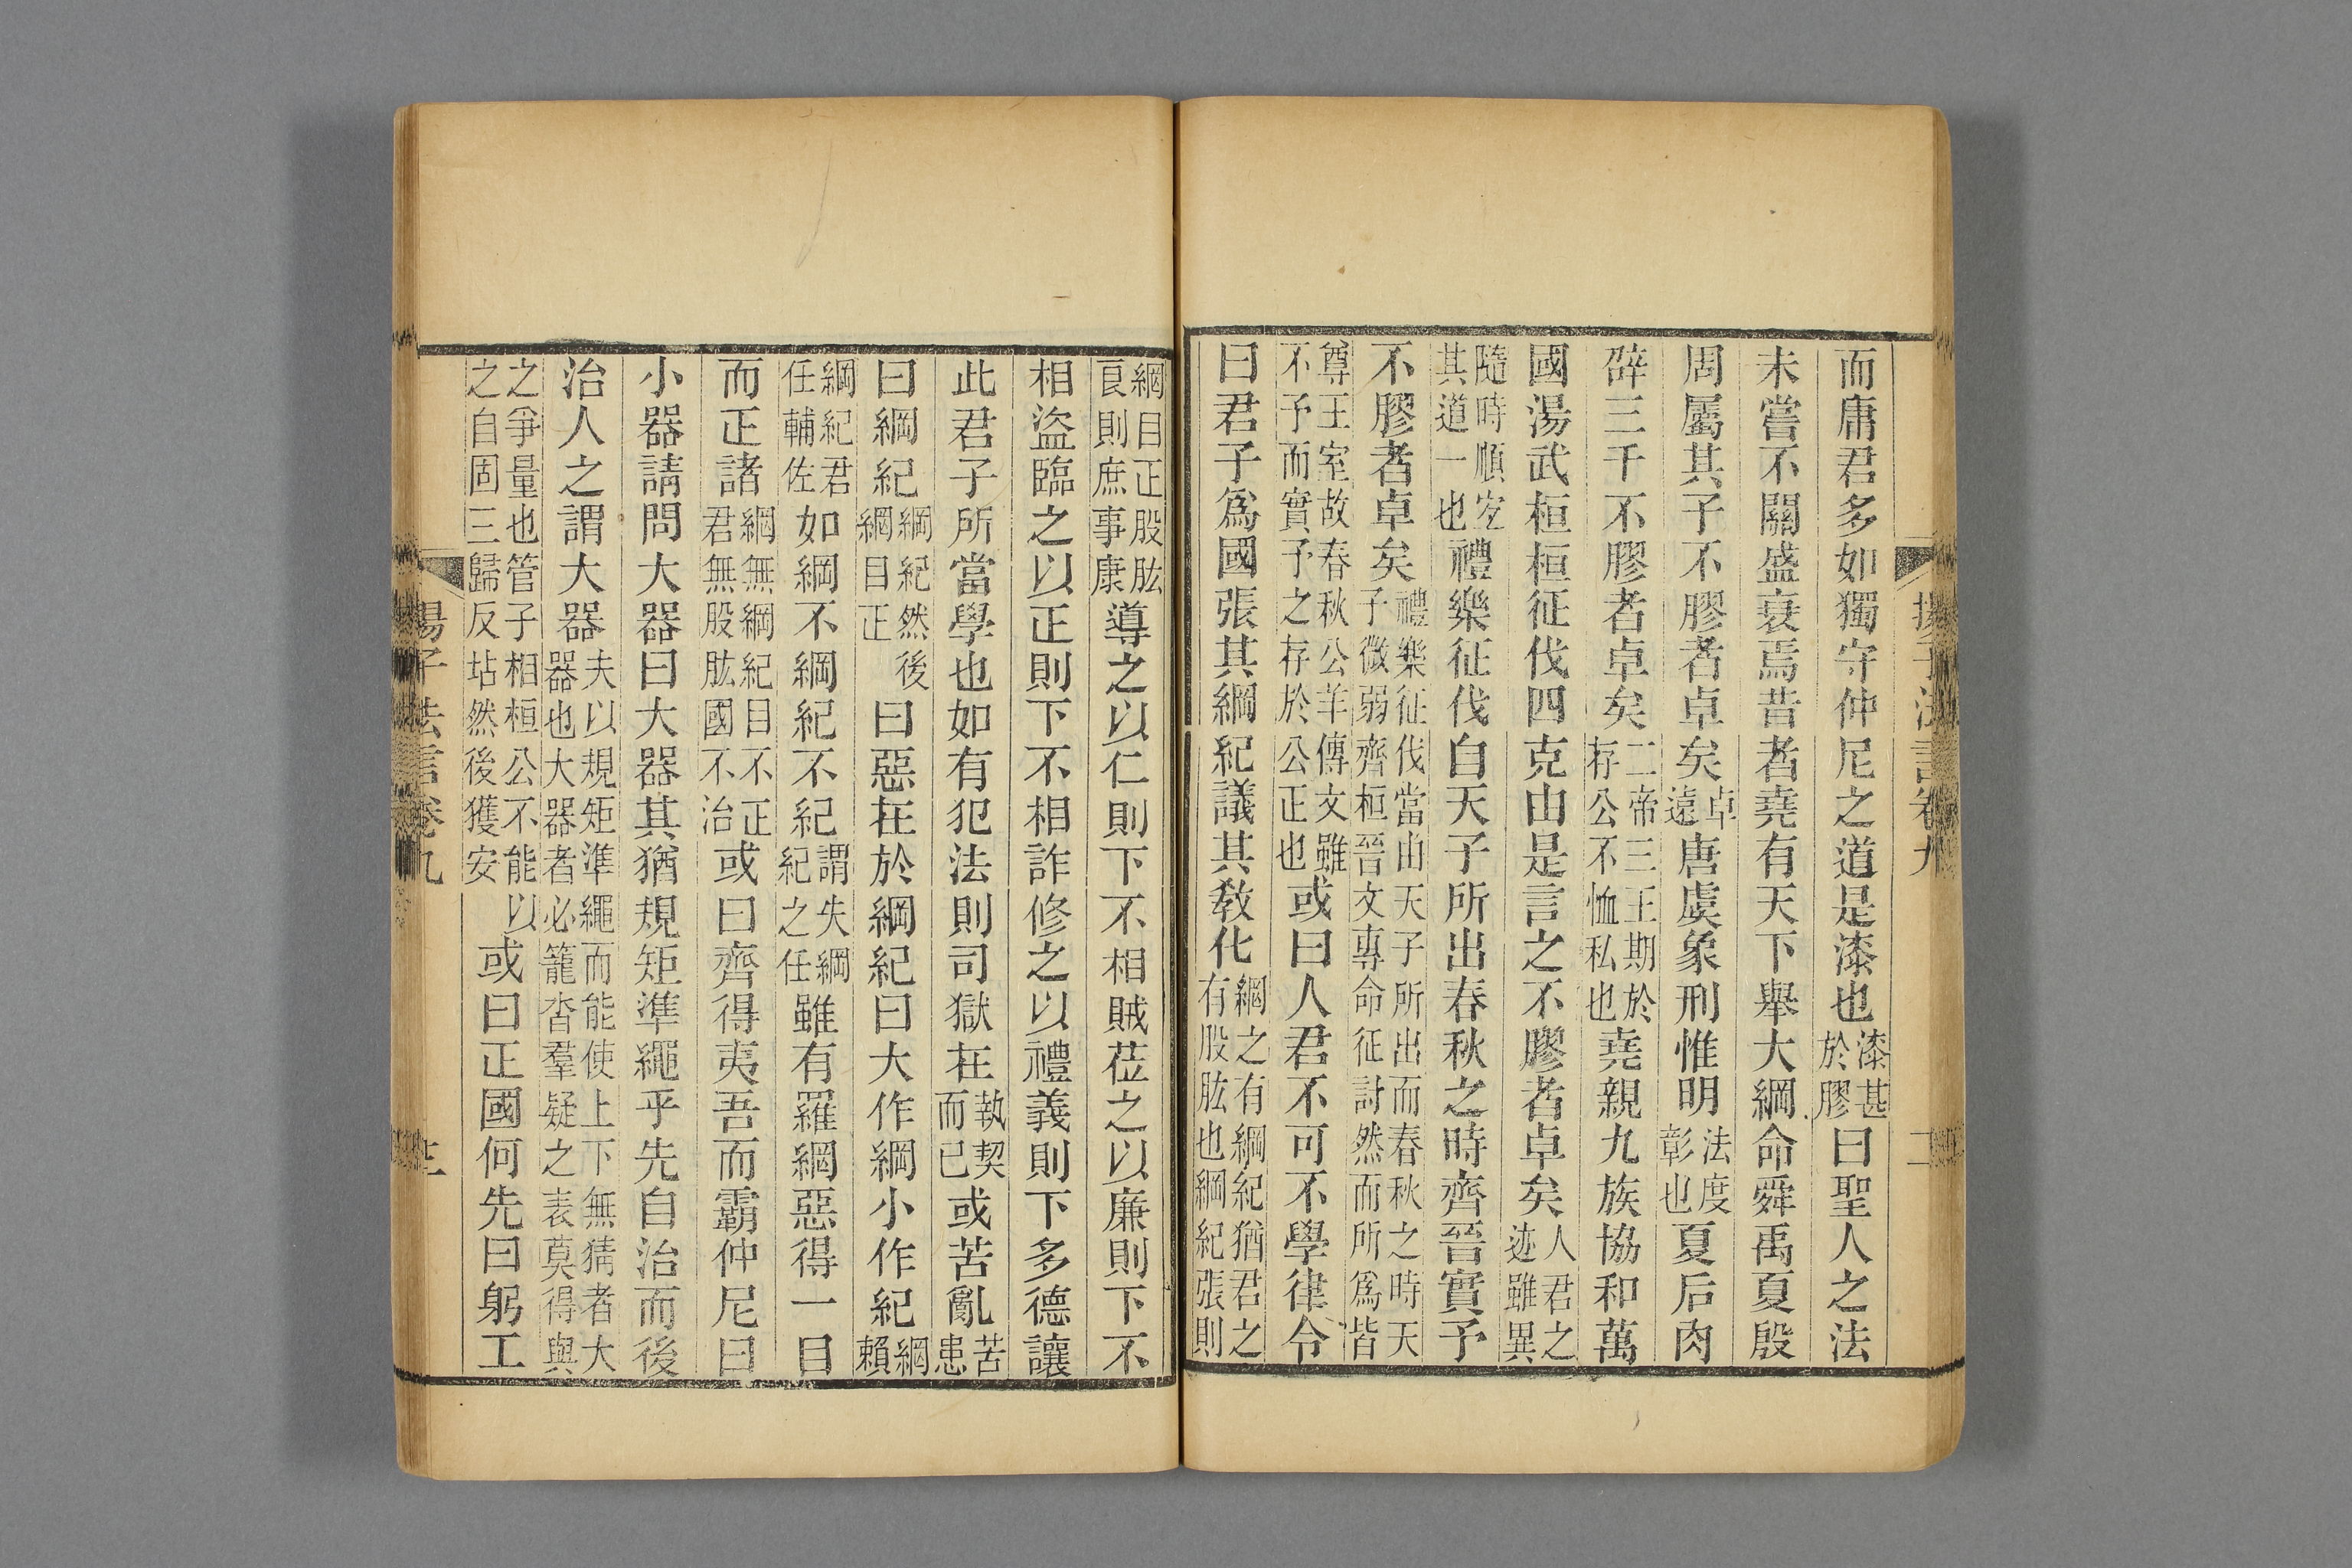 而庸君多如獨守仲尼之道是漆也漆甚於膠曰聖人之法
未嘗不關盛衰焉昔者堯有天下舉大綱命舜禹夏殷
周屬其子不膠者卓矣卓遠唐虞象刑惟明法度彰也夏后肉
辟三千不膠者卓矣二帝三王期於存公不恤私也堯親九族協和萬
國湯武桓桓征伐四克由是言之不膠者卓矣人君之迹雖異
隨時順宐其道一也禮樂征伐自天子所出春秋之時齊晉實予
不膠者卓矣禮樂征伐當由天子所出而春秋之時天子微弱齊桓晉文專命征討然而所爲皆
尊王室故春秋公羊傳文雖不予而實予之存於公正也或曰人君不可不學律令
曰君子爲國張其綱紀議其教化綱之有綱紀猶君之有股肱也綱紀張則
綱目正股肱良則庶事康導之以仁則下不相賊莅之以廉則下不
相盜臨之以正則下不相詐修之以禮義則下多德讓
此君子所當學也如有犯法則司獄在執契而已或苦亂苦患
曰綱紀綱紀然後綱目正曰惡在於綱紀曰大作綱小作紀綱賴
綱紀君任輔佐如綱不綱紀不紀謂失綱紀之任雖有羅網惡得一目
而正諸網無綱紀目不正君無股肱國不治或曰齊得夷吾而霸仲尼曰
小器請問大器曰大器其猶規矩準繩乎先自治而後
治人之謂大器夫以規矩準繩而能使上下無猜者大器也大器者必籠沓羣疑之表莫得與
之爭量也管子相桓公不能以之自固三歸反坫然後獲安或曰正國何先曰躬工
揚子法言卷九
二
揚子法言卷九